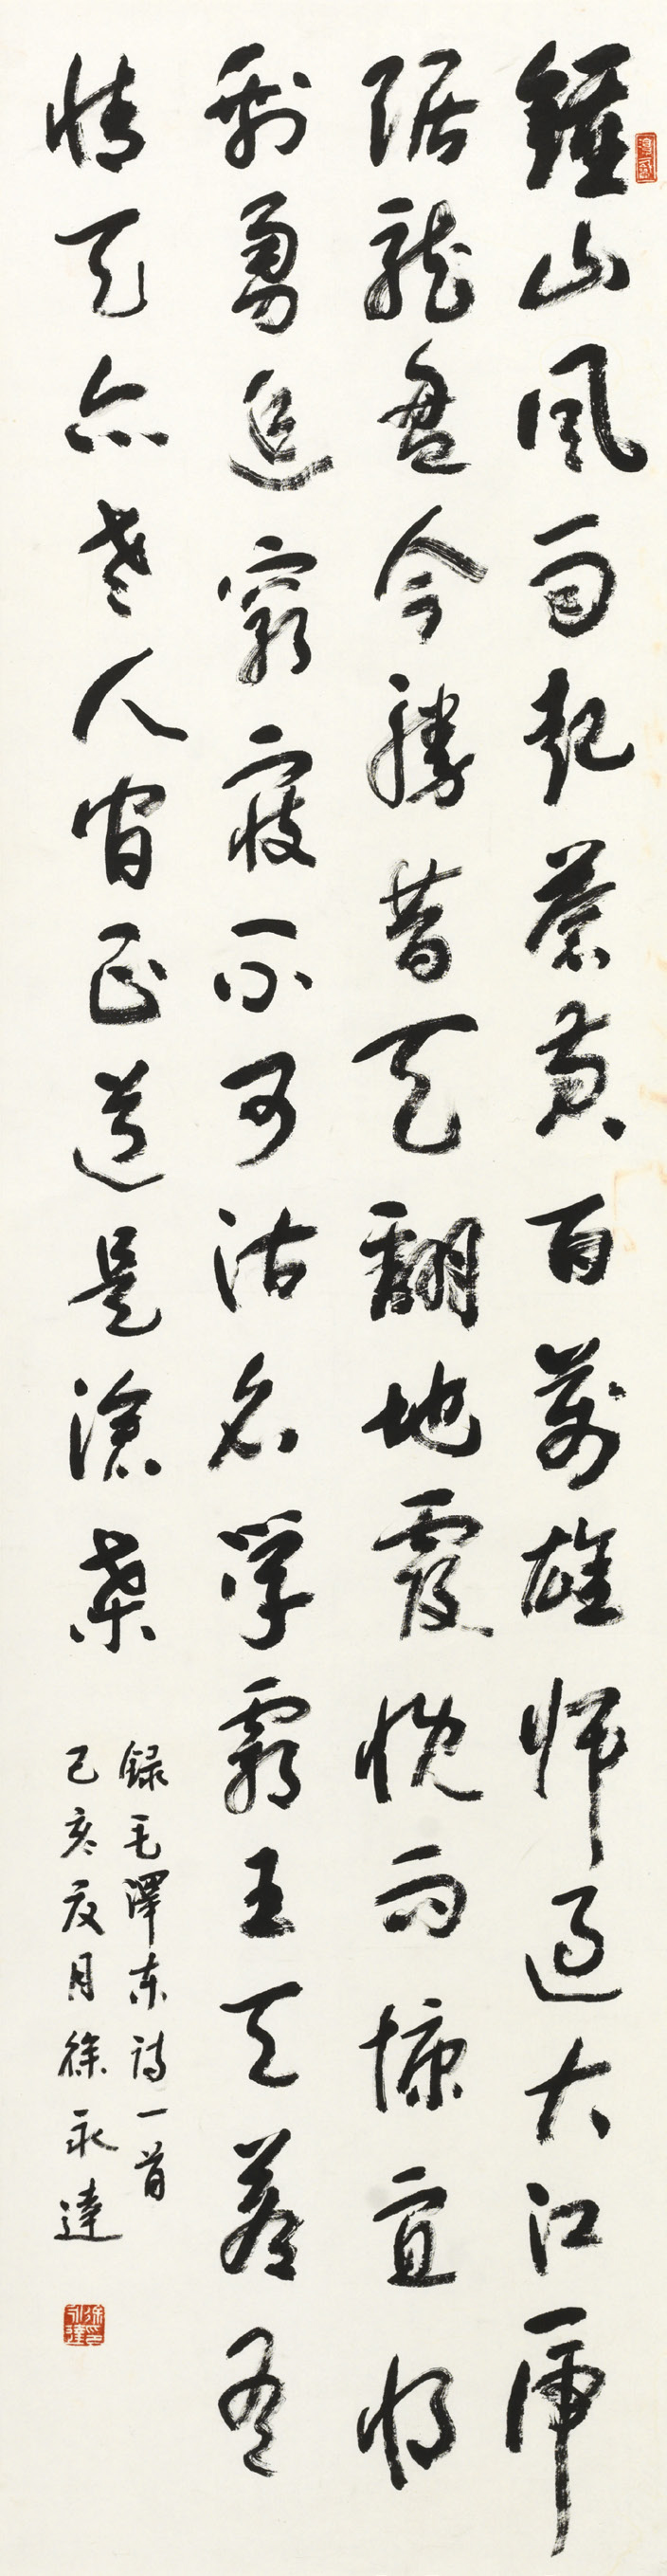 鍾山風雨起蒼黄百萬雄师過大江虎
踞龍盘今勝昔天翻地覆慨而慷宜将
剩勇追窮寇不可沽名学霸王天若有
情天亦老人间正道是滄桑
録毛澤东詩一首
己亥夏月徐永達
徐印永達